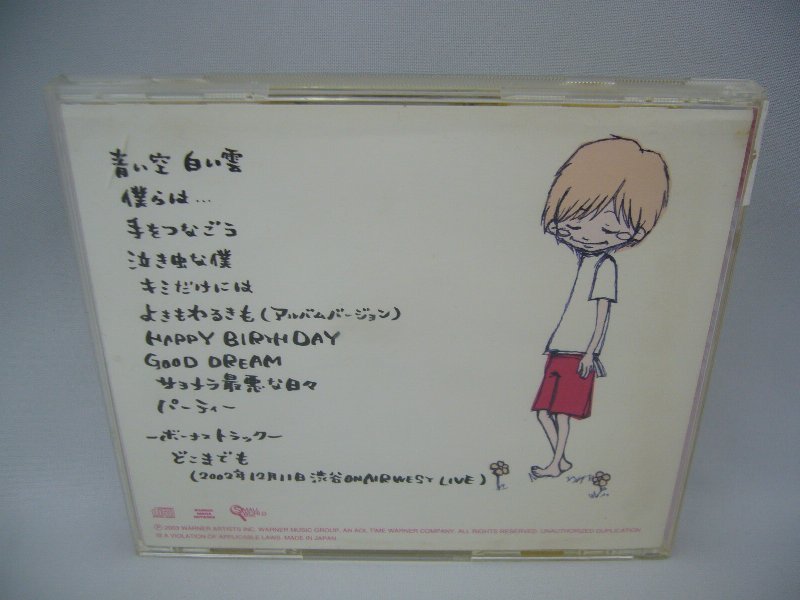 青い空 白い雲
僕らは…
手をつなごう
泣き虫な僕
キミだけには
よきもわるきも(アルバムバージョン)
HAPPY BIRTHDAY
GOOD DREAM
サヨナラ最悪な日々
パーティー
ーボーナストラックー
どこまでも
(2002年12月11日 渋谷ON AIR WEST LIVE)
℗ 2003 WARNER ARTISTS INC. WARNER MUSIC GROUP. AN AOL TIME WARNER COMPANY. ALL RIGHTS RESERVED. UNAUTHORIZED DUPLICATION
IS A VIOLATION OF APPLICABLE LAWS. MADE IN JAPAN.